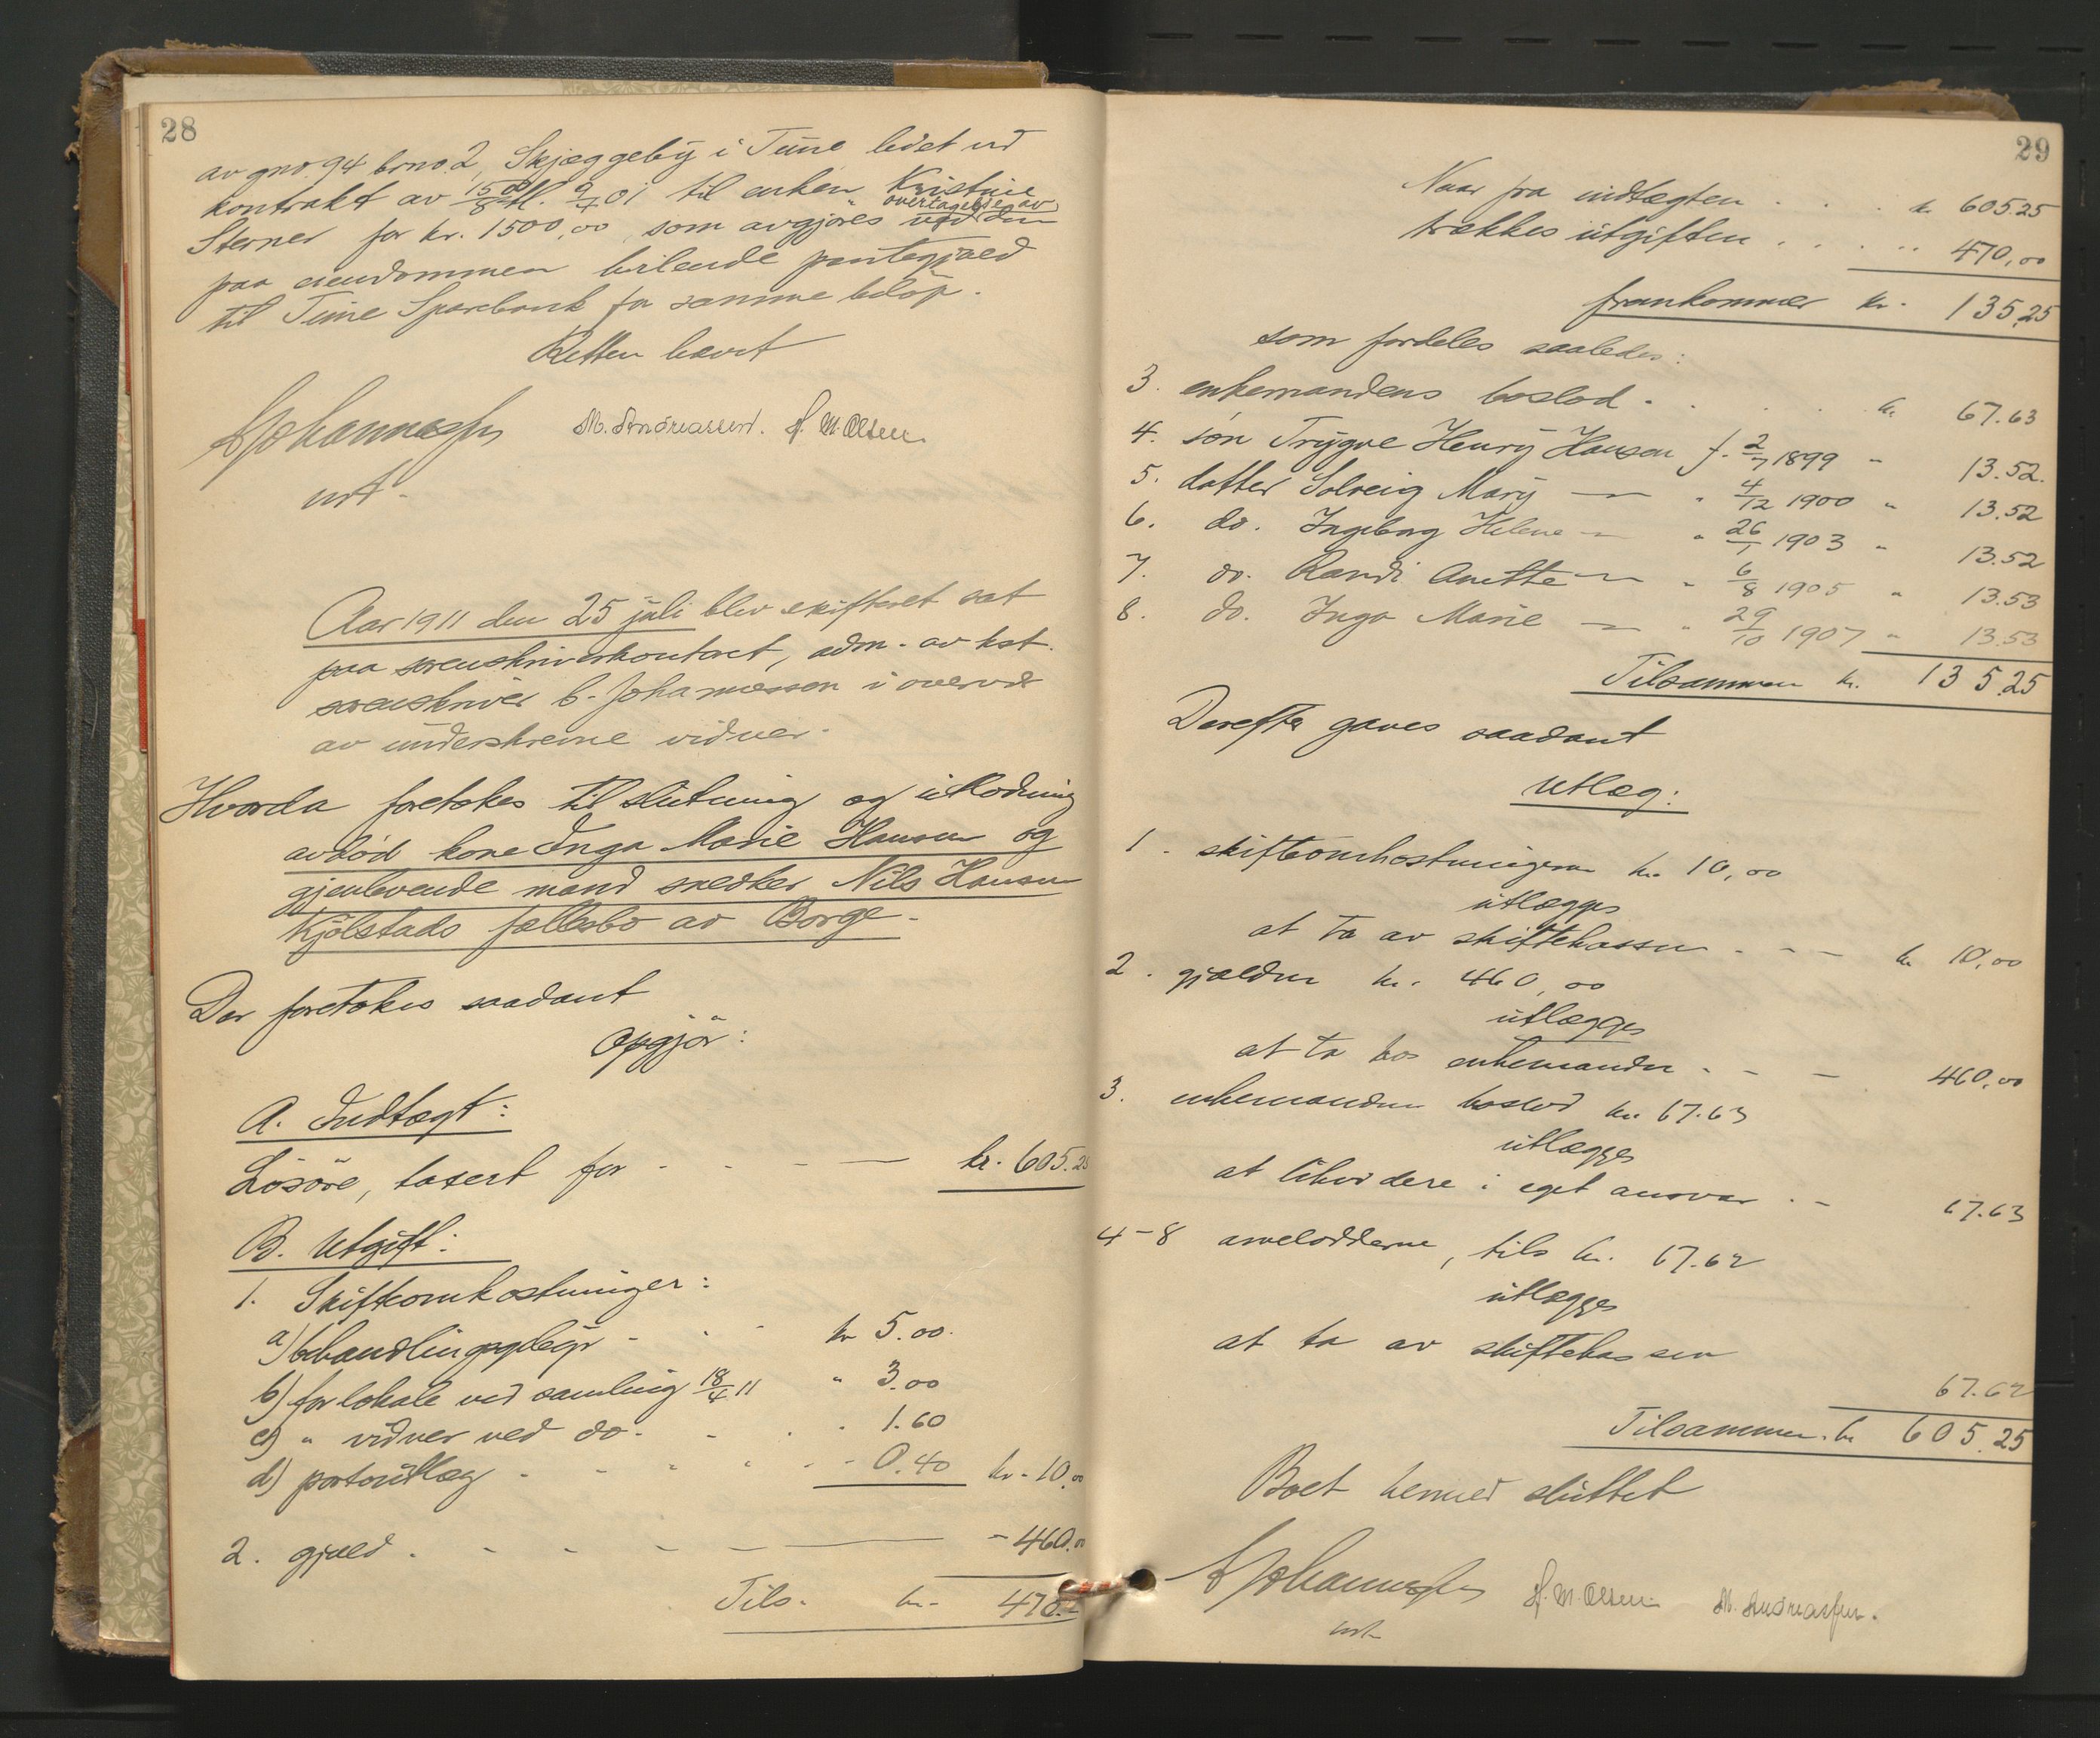 28
av gno. 94 brno. 2, Skjæggeby i Tune ledet ved
kontrakt av tl. 9/7 01 til enken Kristine
Sterner for kr. 1500,00, som avgjøres ved den overtagelse av
paa eiendommen hvilende pantegjæld
til Tune Sparebank for samme beløp.
Retten hævet
Johannessen M. Andreassen. H. M. Olsen.
cst.
Aar 1911 den 25 juli blev skifteret sat
paa sorenskriverkontoret, adm. av kst.
sorenskriver C. Johannessen i overvær
av underskrevne vidner.
Hvorda foretokes til slutning og utlodning
avdød kone Inga Marie Hansen og
gjenlevende mand snedker Nils Hansen
Kjølstads fællesbo av Borge.
Der foretokes saadant
Opgjør:
A. Indtægt:
Løsøre, taxert for - - - kr. 605.25
B. Utgift:
1. Skifteomkostninger:
a) behandlingsgebyr - - - kr 5.00.
b) for lokale ved samling 18/4 11 " 3.00
c) " vidner ved do. - - . 1.60
d) portoutlæg - - - - - - 0.40 kr. 10.00
2. gjæld . - - - - - 460.00
Tils. kr. 470.-
29
Naar fra indtægten . . . . kr 605.25
trækkes utgiften . . . . . 470,00
fremkommer kr. 135,25
som fordeles saaledes:
3. enkemandens boslod . . . . kr. 67.63
4. søn Trygve Henry Hansen f. 2/7 1899 " 13.52.
5. datter Solveig Mary — " 4/12 1900 " 13.52
6. do. Ingeborg Helene — " 26/1 1903 " 13.52
7. do. Randi Anette — " 6/8 1905 " 13.53
8. do. Inga Marie — " 29/10 1907 " 13.53
Tilsammen kr. 135.25
Derefter gaves saadant
Utlæg:
1. skifteomkostningerne kr. 10,00
utlægges
at ta av skiftekassen - - - kr 10,00
2. gjælden kr. 460,00
utlægges
at ta hos enkemanden - - - 460,00
3. enkemandens boslod kr. 67.63
utlægges
at likvidere i eget ansvar . - 67.63
4-8 arvelodderne, tils kr. 67.62
utlægges
at ta av skiftekassen
67.62
Tilsammen. kr 605.25
Boet hermed sluttet
Johannessen H. M. Olsen. M. Andreassen.
cst.